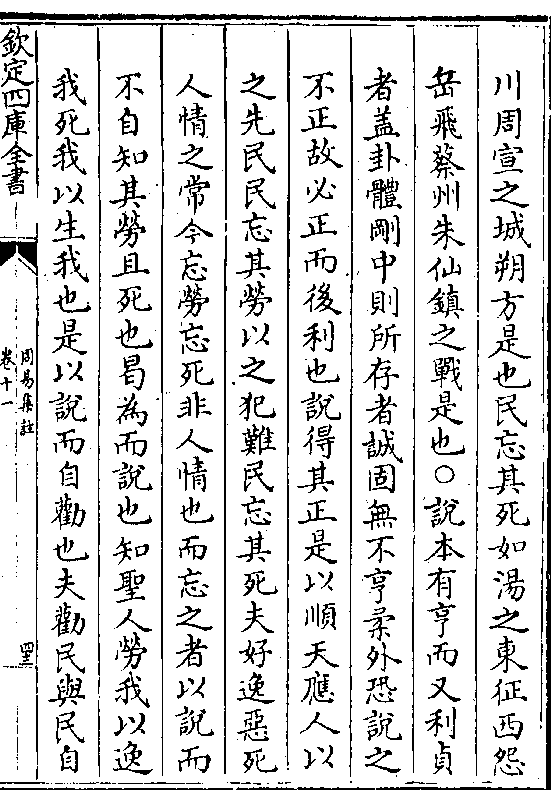 川周宣之城朔方是也民忘其死如湯之東征西怨
岳飛蔡州朱仙鎮之戰是也○說本有亨而又利貞
者盖卦體剛中則所存者誠固無不亨柔外恐說之
不正故必正而後利也說得其正是以順天應人以
之先民民忘其勞以之犯難民忘其死夫好逸惡死
人情之常今忘勞忘死非人情也而忘之者以說而
不自知其勞且死也曷為而說也知聖人勞我以逸
我死我以生我也是以說而自勸也夫勸民與民自
欽定四庫全書
周易集註
卷十一
四三